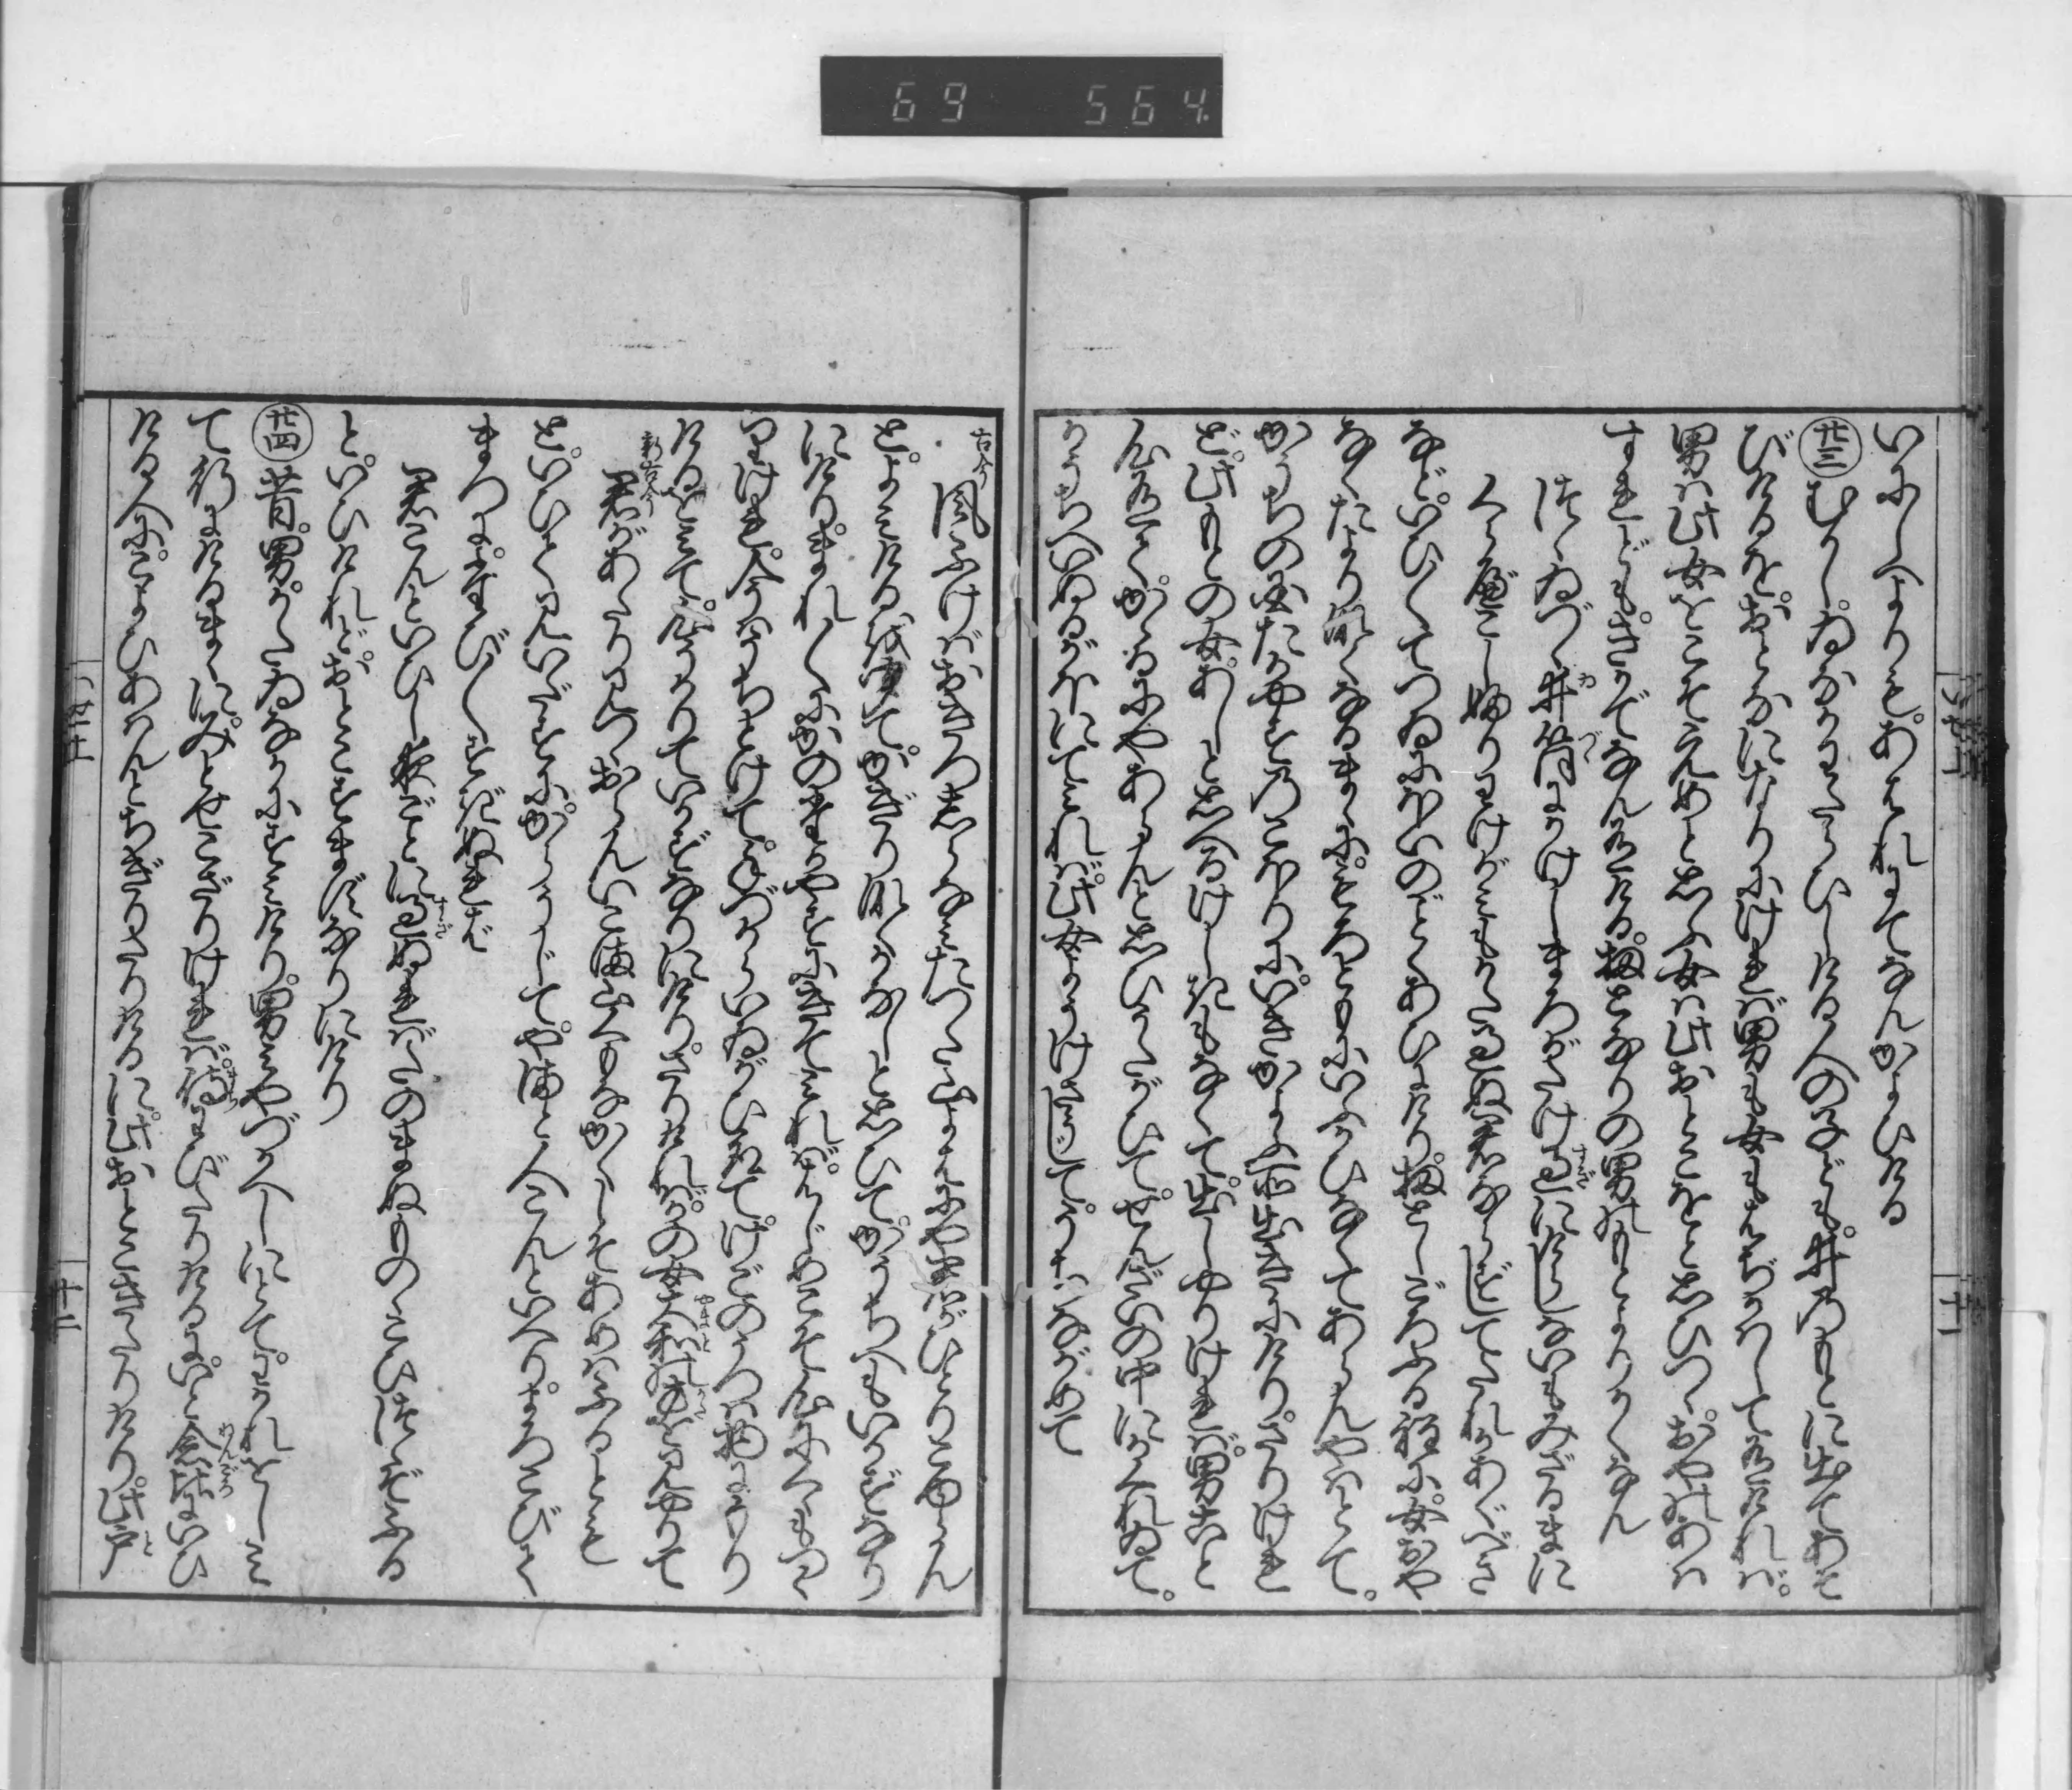 69 564
いにしへよりもあはれにてなんかよひける
廿三 むかしゐなかわたらひしける人の子ども井のもとに出てあそ
びけるをおとなになりにければ男も女もはぢかはして有ければ
男は此女をこそえめと思ふ女は此おとこをと思ひつゝおやのあは
すれどもきかでなん有ける扨となりの男のもとよりかくなん
つゝゐづゝ井筒にかけしまろがたけ過にけらしないもみざるまに
くらべこし婦りわけがみもかた過ぬ君ならずしてたれかあぐべき
などいひ〳〵てつゐにほいのごとくあひにけり扨としごろふる程に女おや
なくたより
なくなるまゝにもろともにいふかひなくてあらんやはとて
かうちの国たかやすのこほりにいきかよふ所出きにけりさりけれ
ど此もとの女あしと思へるけしきもなくて出しやりければ男こと
心有てかゝるにやあらんと思ひうたがひてせんざいの中にかくれゐて
かうちへいぬるがほにてみれば此女ようけさうしてうちながめて
古今
風ふけばおきつしらなみたつた山よはにや君がひとりこゆらん
とよみけるを聞てかぎりなくかなしと思ひてかうちへもいかずなり
にけりまれ〳〵かのたかやすにきてみればはじめこそ心にくもつく
りけれ今はうちとけて手づからいゐがひ取てけごのうつは物にもり
けるをみて心うかりていかずなりにけりさりければかの女大和の方を見やりて
新古今
君があたり見つゝおらんいこま山雲なかくしそあめはふるとも
といひて見いだすにからうじてやまと人こんといへりよろこびて
まつにたび〳〵過ぬれば
君こんといひし夜ごとに過ぬればたのまぬものゝこひつゝぞふる
といひけれどおとこすまずなりにけり
廿四 昔男かたゐなかにすみけり男みやづかへしにとてわかれおしみ
て行にけるまゝにみとせこざりければ待わびたりけるにいと念比にいひ
ける人にこよひあはんとちぎりたりけるに此おとこきたりけり此戸